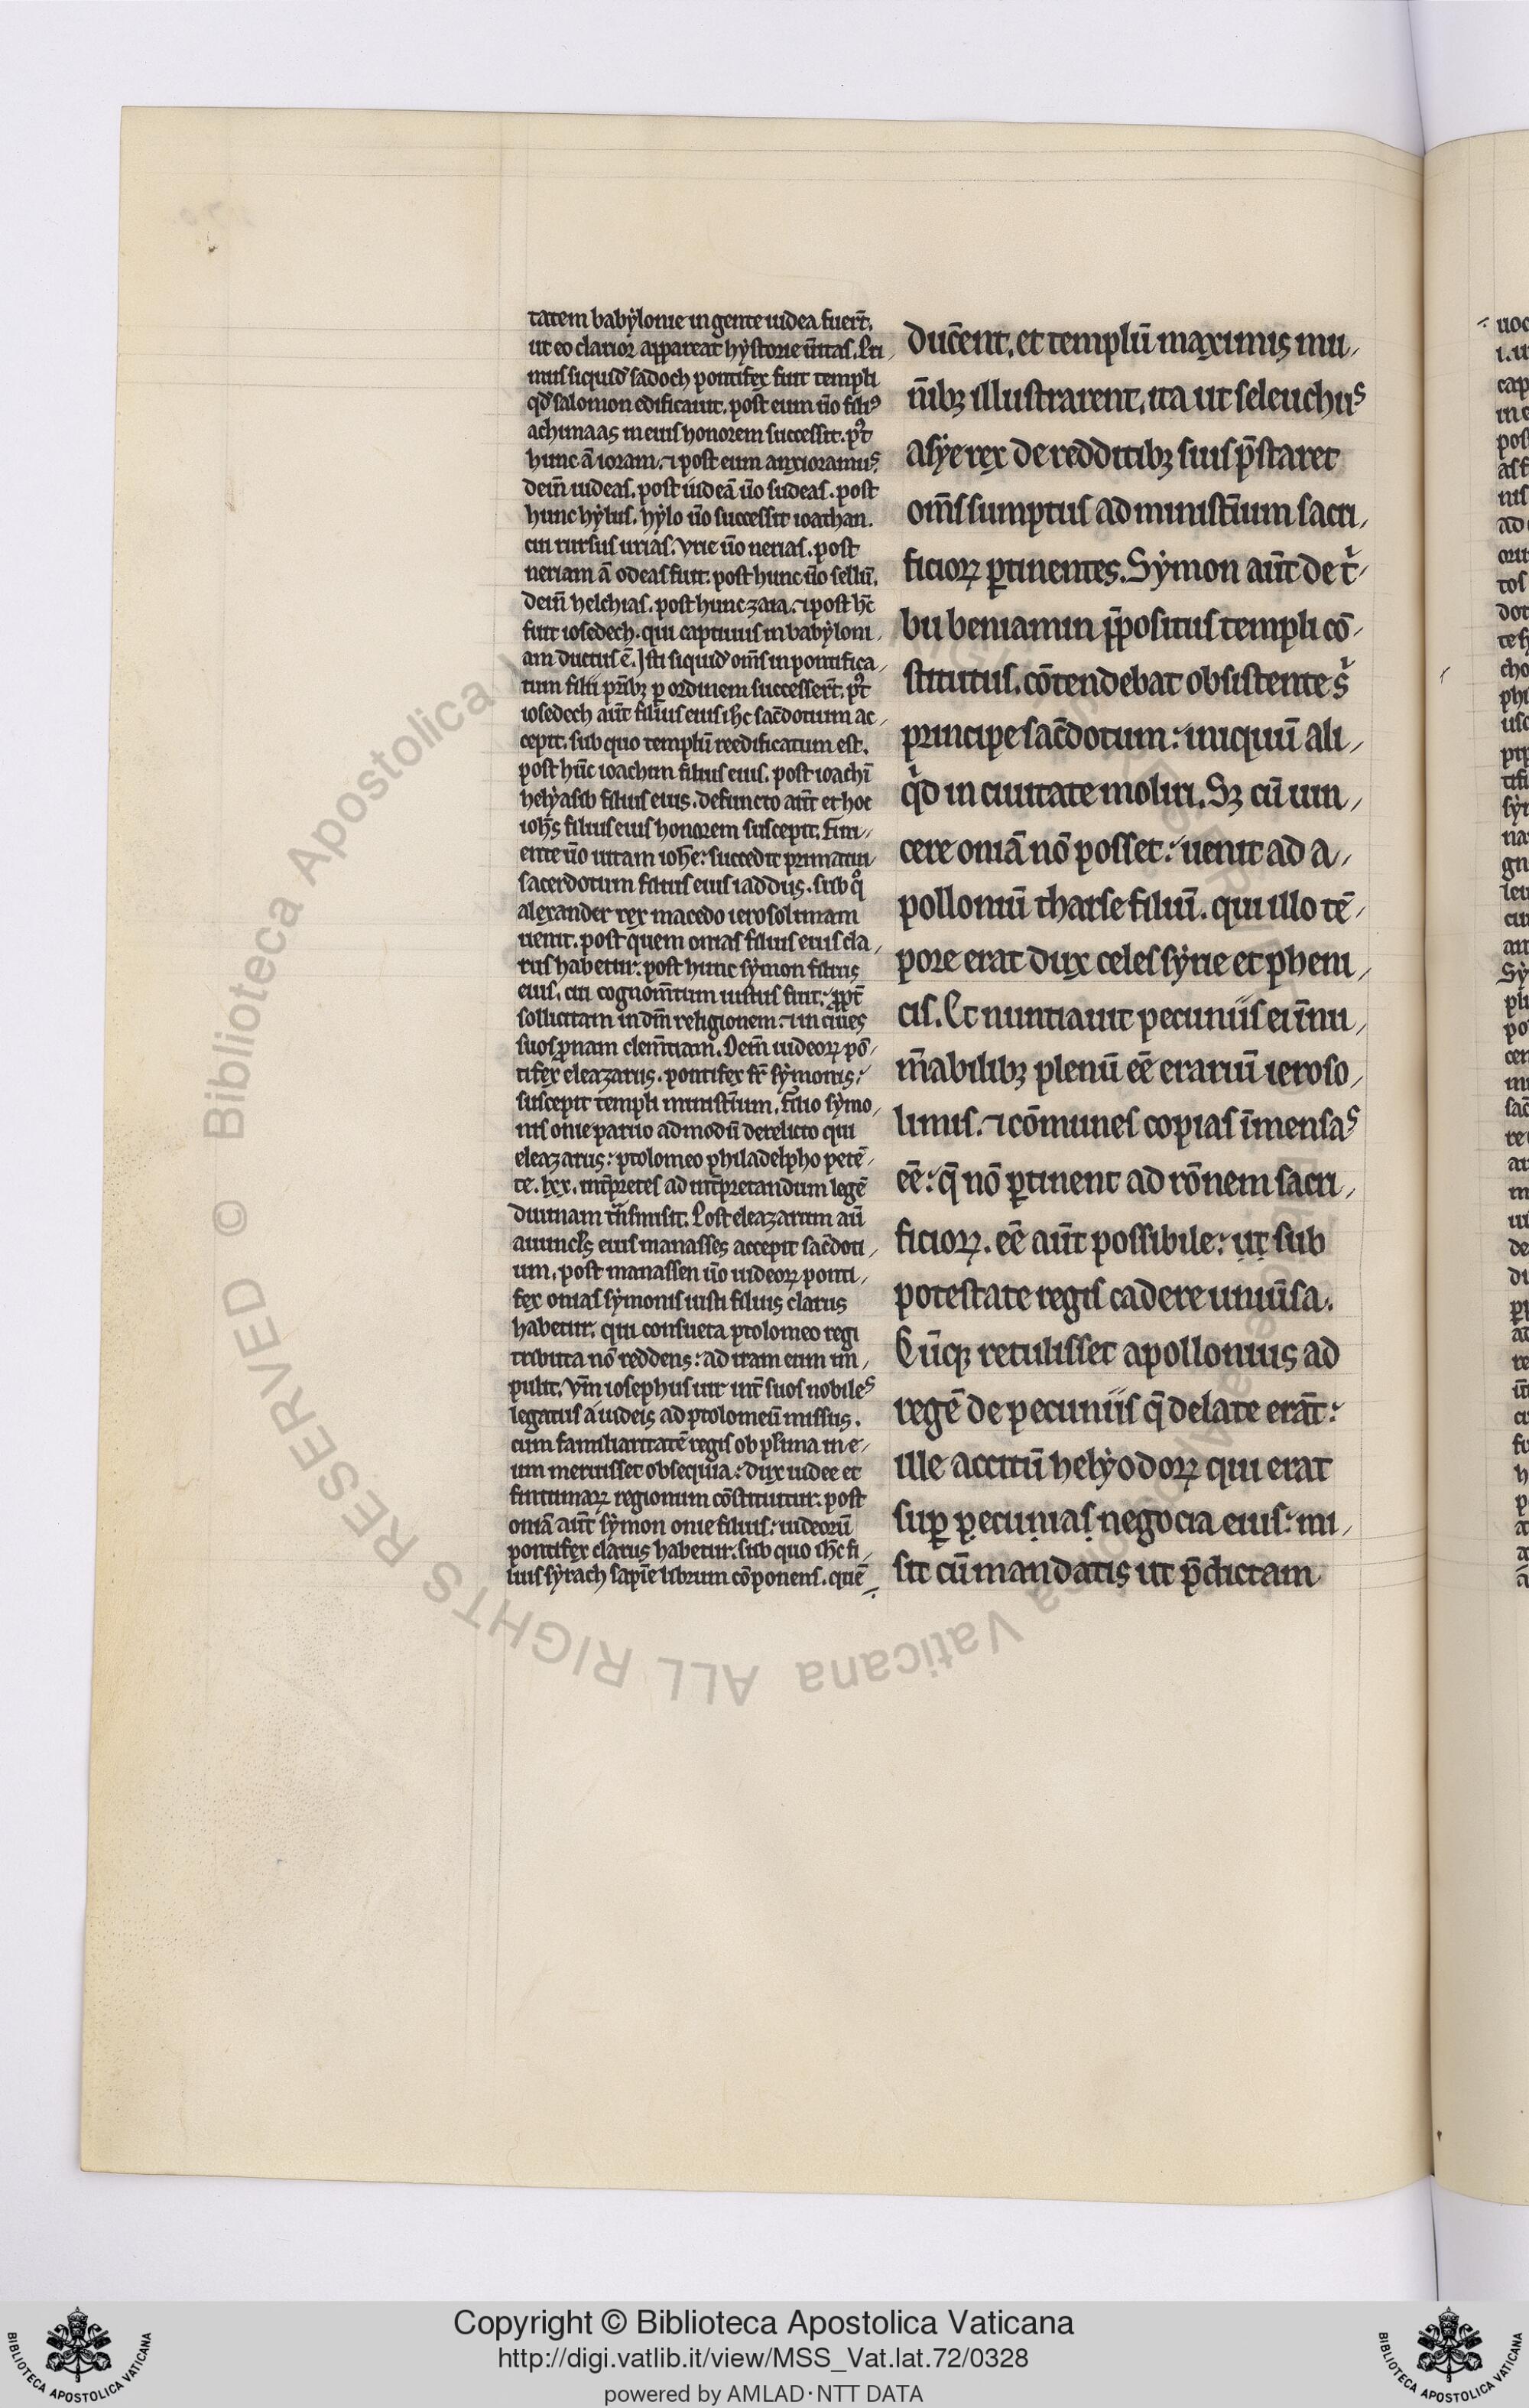 tatem babẏlonie in gente iudea fuer̄t.
ut eo clarior appareat hẏstorie ūitas. Pri
mus siquid̄ sadoch pontifex fuit templi
qd̄ salomon edificauit. post eum ūo filiꝰ
achimaas in eius honorem successit. pꝰt
hunc ā ioram. ⁊ post eum anxioramuˢ.
dein̄ iudeas. post iudeā ūo sudeas. post
hunc hẏlus. hẏlo ūo successit ioathan.
cui rursus urias. vrie ūo nerias. post
neriam ā odeas fuit. post hunc ūo sellū.
dein̄ helchias. post hunc zara. ⁊ post hc̄
fuit iosedech. qui captiuus in babẏloni
am ductus ē. Isti siquid̄ om̄s in pontifica
tum filii pr̄ibꝫ ꝑ ordinem successer̄t. pꝰt
iosedech aūt filius eius ihc̄ sac̄dotium ac
cepit. sub quo templū reedificatum est.
post hūc ioachim filius eius. post ioachī
helẏasib filius eius. defuncto aūt et hoc
ioh̄s filius eius honorem suscepit. Fini
ente ūo uitam ioh̄e: succedit primatui
sacerdotum filius eius iaddus. sub qͦ
alexander rex macedo ierosolimam
uenit. post quem onias filius eius cla
rus habetur. post hunc sẏmon filius
eius. cui cognom̄tum iustus fuit: ꝓpt̄
sollicitam in dm̄ religionem. ⁊ in ciues
suos ꝓnam clem̄tiam. Dein̄ iudeoꝝ pō
tifex eleazarus. pontifex fr̄ sẏmonis:
suscepit templi minist̄ium. filio sẏmo
nis onie paruo admodū derelicto qui
eleazarus: ptolomeo philadelpho petē
te. lxx. int̄pretes ad int̄pretandum legē
diuinam tn̄smisit. Post eleazarum aū
auuncl̄s eius manasses accepit sac̄doti
um. post manassen ūo iudeoꝝ ponti
fex onias sẏmonis iusti filius clarus
habetur. qui consueta ptolomeo regi
tributa nō reddens: ad iram eum im̄
pulit. Vm̄ iosephus uir int̄ suos nobileˢ
legatus a iudeis ad ptolomeū missus.
cum familiaritatē regis ob pl̄ima in e
um meruisset obsequia: dux iudee et
finitimaꝝ regionum cōstituitur. post
oniā aūt sẏmon onie filius: iudeorū
pontifex clarus habetur. sub quo ihc̄ fi
lius sẏrach sapīe librum cōponens. quē
duc̄ent. et templū maximis mu
n̄ibꝫ illustrarent. ita ut seleuchuˢ
asẏe rex de redditibꝫ suis p̄staret
om̄s sumptus ad minist̄ium sacri
ficioꝝ ꝑtinentes. Sẏmon aūt de tͥ
bu beniamin p̄positus templi cō
stitutus. cōtendebat obsistente sͥ
principe sac̄dotum: iniquū ali
qͥd in ciuitate moliri. Sꝫ cū uin
cere oniā nō posset: uenit ad a
pollonīū tharse filiū. qui illo tē
pore erat dux celes sẏrie et pheni
cis. Et nuntiauit pecuniis ei īnu
m̄abilibꝫ plenū eē erariū ieroso
limis. ⁊ cōmunes copias īmensaˢ
eē: q̄ nō ꝑtinent ad rōnem sacri
ficioꝝ. eē aūt possibile: ut sub
potestate regis cadere uniūsa.
Cūqꝫ retulisset apollonius ad
regē de pecuniis q̄ delate erāt:
ille accitū helẏodoꝝ qui erat
suꝑ pecunias negocia eius: mi
sit cū mandatis ut p̄dictam
Copyright © Biblioteca Apostolica Vaticana
http://digi.vatlib.it/view/MSS_Vat.lat.72/0328
powered by AMLAD·NTT DATA